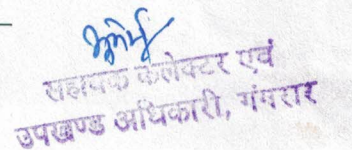 सहायक कलेक्टर एवं
उपखण्ड अधिकारी, गंगरार